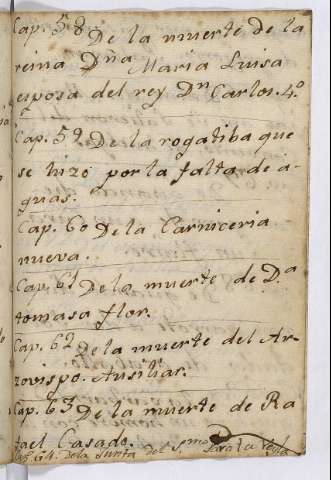 Cap. 58 De la muerte de la
reina Dña Maria Luisa
esposa del rey Dn Carlos. 4.º
Cap. 59 De la rogatiba que
se hizo por la falta de a-
guas.
Cap. 60 De la Carniceria
nueva.
Cap. 61 De la muerte de D.ª
tomasa flor.
Cap. 62 De la muerte del Ar-
zovispo. Ausiliar.
Cap. 63 De la muerte de Ra
fael Casado.
Cap. 64. de la Junta del S.mo